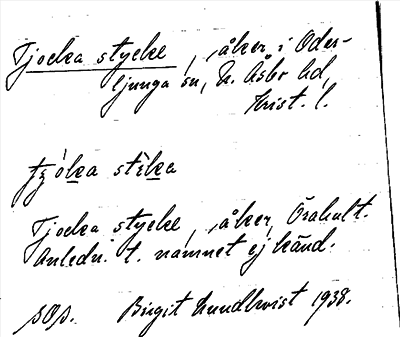 Tjocka stycke, åker i Oder-
ljunga sn, N. Åsbo hd,
Krist. l.
tjóka stỳka
Tjocka stycke, åker, Örahult.
Anledn. t. namnet ej känd.
sop. Birgit Lundkvist 1938.